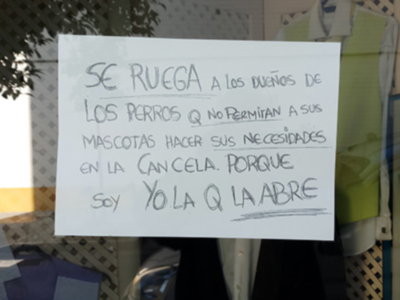 SE RUEGA A LOS DUEÑOS DE
LOS PERROS Q NO PERMITAN A SUS
MASCOTAS HACER SUS NECESIDADES
EN LA CANCELA. PORQUE
SOY YO LA Q LA ABRE